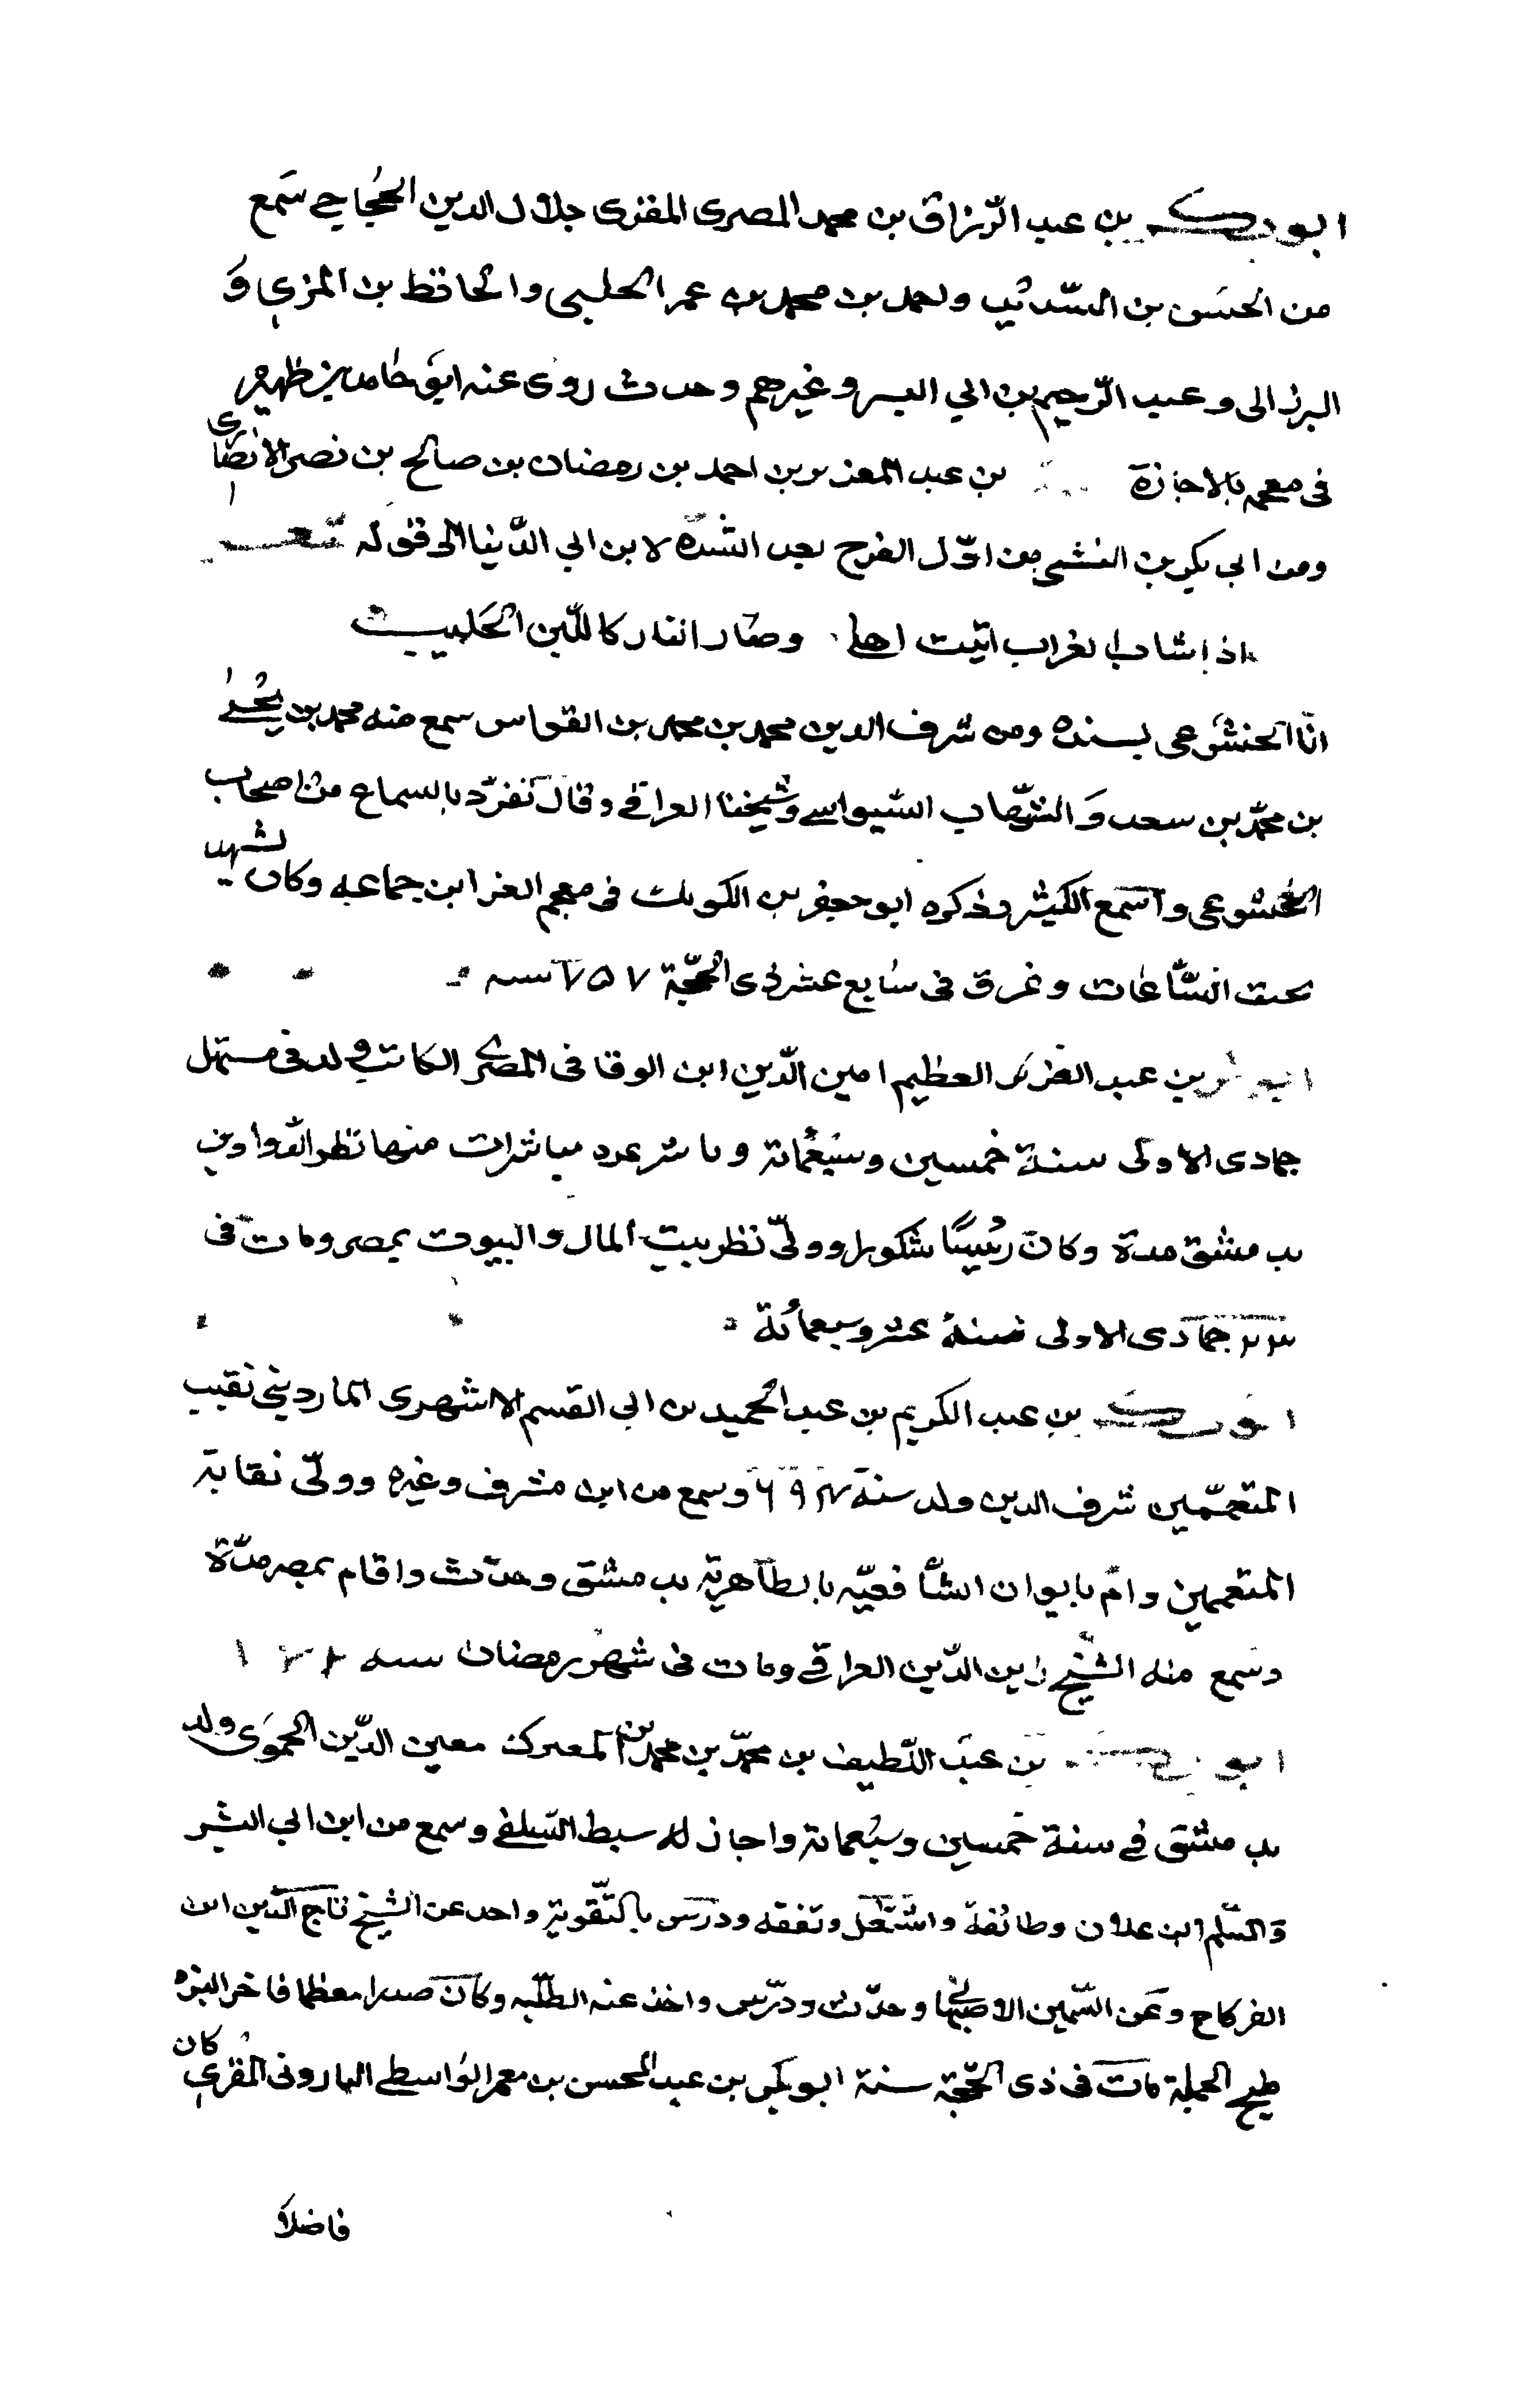 ابو بكر بن عبد الرزاق بن محمد المصرى المقرى جلال الدين الحجاجى سمع
من الحسن بن السديد واحمد بن محمد بن عمر الحلبى والحافظ بن المزى و
البرزالى وعبد الرحيم بن ابي اليسر وغيرهم وحدث روى عنه ابو حامد بن ظهيرة
فى معجمه بالاجازة بن عبد العزيز بن احمد بن رمضان بن صالح بن نصر الانصارى
ومن ابي بكر بن النشبى من اوّل الفرج بعد الشدّة لابن ابي الدّنيا الى قوله
اذا شاب الغراب اتيت اهلى وصار القار كاللّبن الحليب
انّا الخشوعى بسنده ومن شرف الدين محمد بن محمد بن القواس سمع منه محمد بن يحيى
بن محمّد بن سعد و الشّهاب السّيواسى وشيخنا العراقى وقال تفرّد بالسماع من اصحاب
الخشوعى واسمع الكثير وذكره ابو جعفر بن الكويك فى معجم العز ابن جماعه وكان يشهد
تحت السّاعات وغرق فى سابع عشر ذى الحجّة سنه ٧٥٧
ابو بكر بن عبد العظيم امين الدّين ابن الوقاقى المصرى الكاتب ولد فى مستهل
جمادى الاولى سنة خمسين وسبعمائة وباشر عدة مباشرات منها نظر الدواوين
بدمشق مدة وكان رئيسًا شكورا وولّى نظر بيت المال والبيوت بمصر ومات فى
٢٣ جمادى الاولى سنة عشر وسبعمائة
ابو بكر بن عبد الكريم بن عبد الحميد بن ابي القسم الاشهرى الماردينى نقيب
المتعمّمين شرف الدين ولد سنة ٦٩٣ وسمع من ابن مشرف وغيره وولّى نقابة
المتعممين وامّ بايوان الشّافعيّه بالظاهريّة بدمشق وحدّث واقام بمصر مدّة
وسمع منه الشيخ زين الدّين العراقى ومات فى شهر رمضان سنه
ابو بكر بن عبد اللّطيف بن محمّد بن محمد بن المعرك معين الدّين الحموى ولد
بدمشق في سنة خمسين وسبعمائة واجاز له سبط السّلفى وسمع من ابن ابي اليسر
والمسلّم ابن علان وطائفة واشتغل وتفقه ودرّس بالتّقوية واخذ عن الشيخ تاج الدّين ابن
الفركاح وعن السّمين الاصبهانى وحدّث ودرّس واخذ عنه الطلبه وكان صدرا معظما فاخر البزه
مليح الجملة مات فى ذى الحجّة سنة ابو بكر بن عبد المحسن بن معمر الواسطى الباروقى المقرى كان
فاضلا